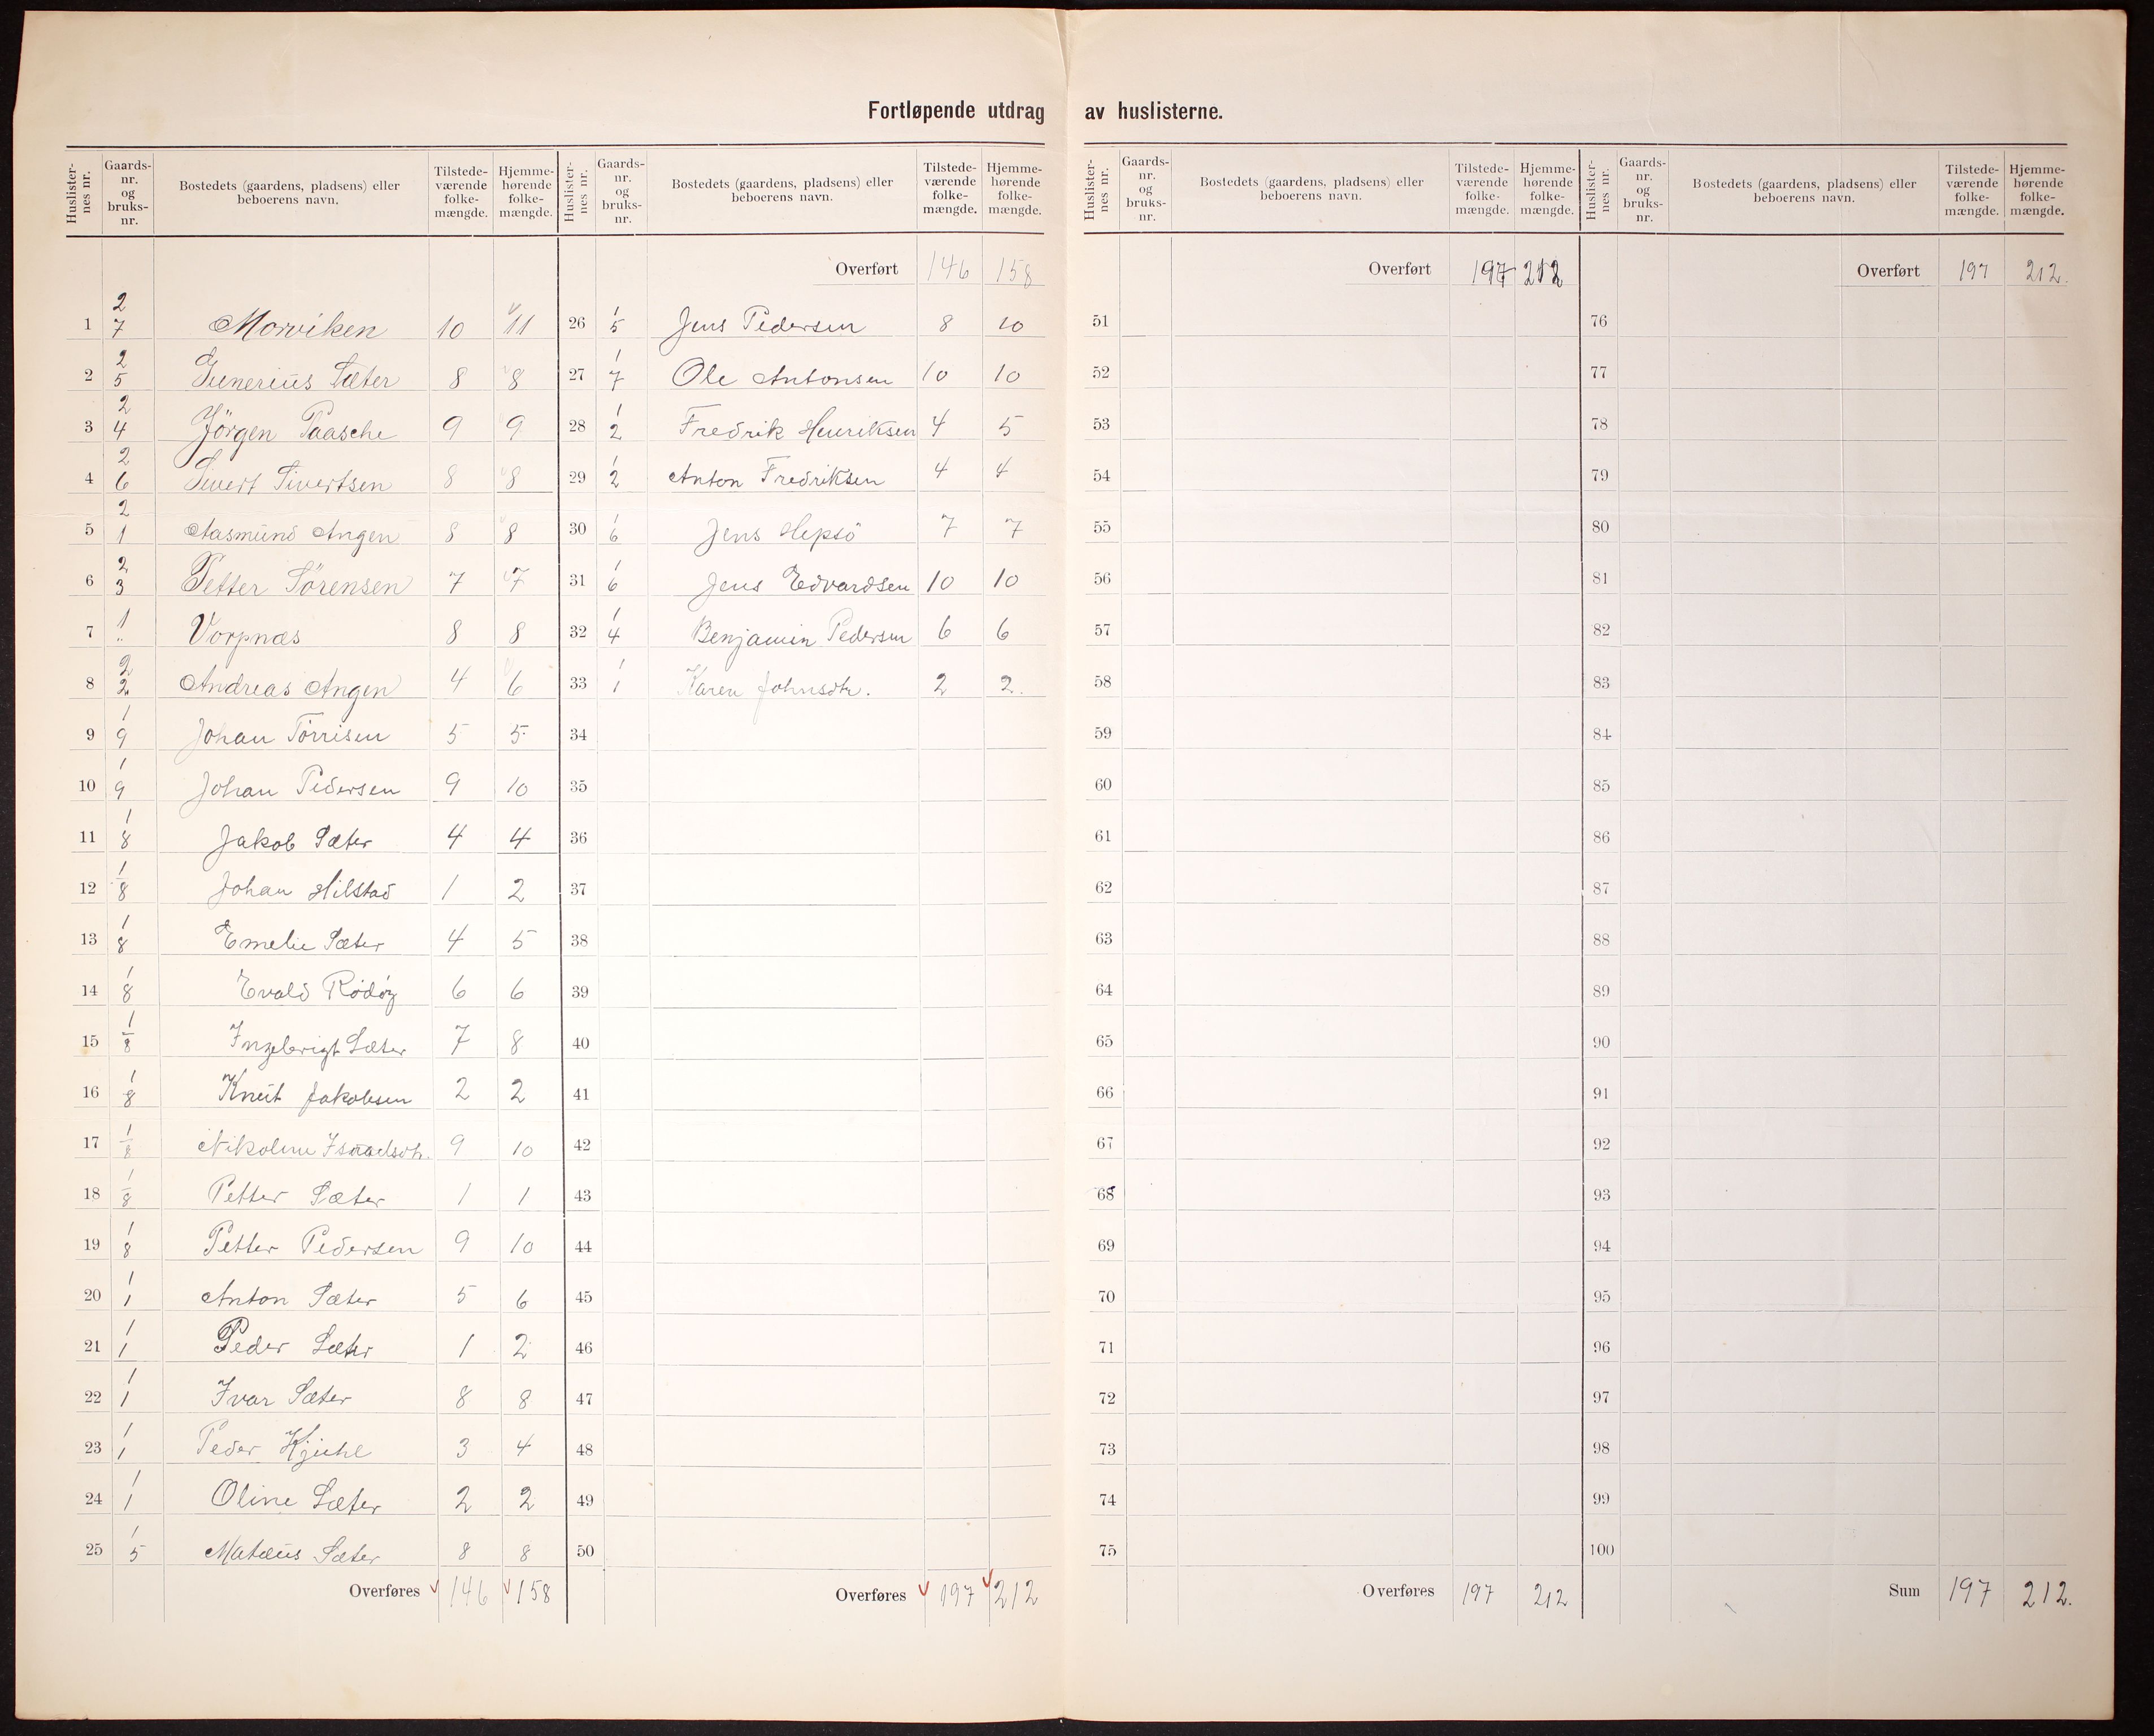 Fortløpende utdrag av huslisterne.
Huslister-nes nr. Gaards-nr. og bruks-nr. Bostedets (gaardens, pladsens) eller beboerens navn. Tilstede-værende folke-mængde. Hjemme-hørende folke-mængde.
1 2/7 Morviken 10 11
2 2/5 Gunerius Sæter 8 8
3 2/4 Jörgen Paasche 9 9
4 2/6 Sivert Sivertsen 8 8
5 2/1 Aasmund Angen 8 8
6 2/3 Petter Sörensen 7 7
7 1/" Vorpnæs 8 8
8 2/2 Andreas Angen 4 6
9 1/9 Johan Törrisen 5 5
10 1/9 Johan Pedersen 9 10
11 1/8 Jakob Sæter 4 4
12 1/8 Johan Hilstad 1 2
13 1/8 Emelie Sæter 4 5
14 1/8 Evald Rödöy 6 6
15 1/8 Ingebrigt Sæter 7 8
16 1/8 Knut Jakobsen 2 2
17 1/8 Nikoline Israelsdtr. 9 10
18 1/8 Petter Sæter 1 1
19 1/8 Petter Pedersen 9 10
20 1/1 Anton Sæter 5 6
21 1/1 Peder Sæter 1 2
22 1/1 Ivar Sæter 8 8
23 1/1 Peder Kjuhl 3 4
24 1/1 Oline Sæter 2 2
25 1/5 Matæus Sæter 8 8
Overføres 146 158
Huslister-nes nr. Gaards-nr. og bruks-nr. Bostedets (gaardens, pladsens) eller beboerens navn. Tilstede-værende folke-mængde. Hjemme-hørende folke-mængde.
Overført 146 158
26 1/5 Jens Pedersen 8 10
27 1/7 Ole Antonsen 10 10
28 1/2 Fredrik Henriksen 4 5
29 1/2 Anton Fredriksen 4 4
30 1/6 Jens Hepsö 7 7
31 1/6 Jens Edvardsen 10 10
32 1/4 Benjamin Pedersen 6 6
33 1/1 Karen Johnsdtr. 2 2.
34
35
36
37
38
39
40
41
42
43
44
45
46
47
48
49
50
Overføres 197 212
Huslister-nes nr. Gaards-nr. og bruks-nr. Bostedets (gaardens, pladsens) eller beboerens navn. Tilstede-værende folke-mængde. Hjemme-hørende folke-mængde.
Overført 197 212
51
52
53
54
55
56
57
58
59
60
61
62
63
64
65
66
67
68
69
70
71
72
73
74
75
Overføres 197 212
Huslister-nes nr. Gaards-nr. og bruks-nr. Bostedets (gaardens, pladsens) eller beboerens navn. Tilstede-værende folke-mængde. Hjemme-hørende folke-mængde.
Overført 197 212.
76
77
78
79
80
81
82
83
84
85
86
87
88
89
90
91
92
93
94
95
96
97
98
99
100
Sum 197 212.